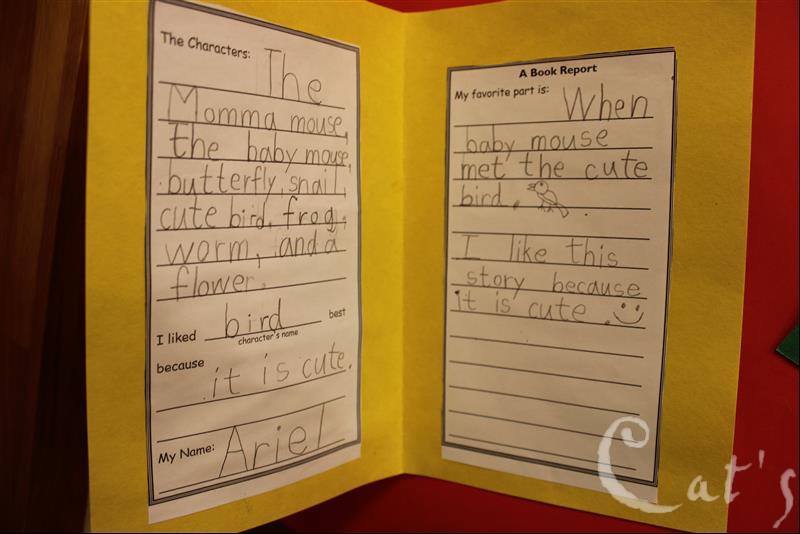 The Characters: The
Momma mouse,
the baby mouse,
butterfly, snail,
cute bird, frog,
worm, and a
flower.
I liked bird best
character's name
because it is cute.
My Name: Ariel
A Book Report
My favorite part is: When
baby mouse
met the cute
bird.
I like this
story because
it is cute.
Cat's